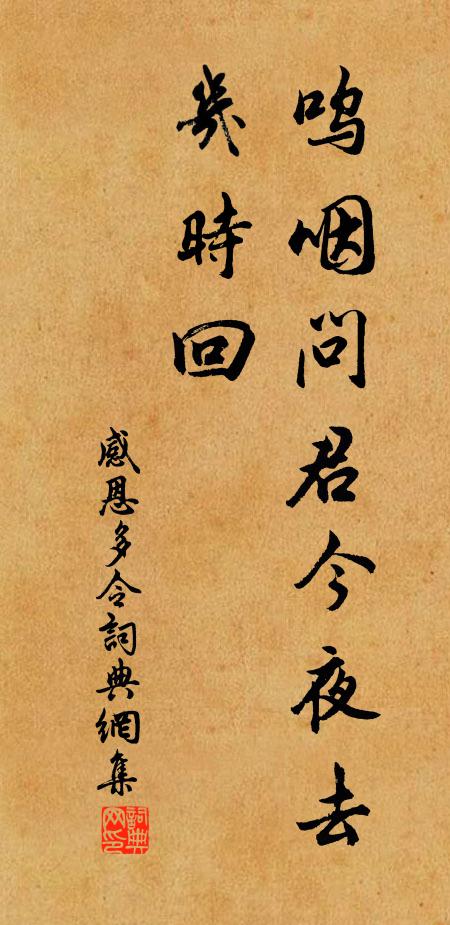 呜咽问君今夜去
幾時回
感恩多令詞典網集
詞典网印